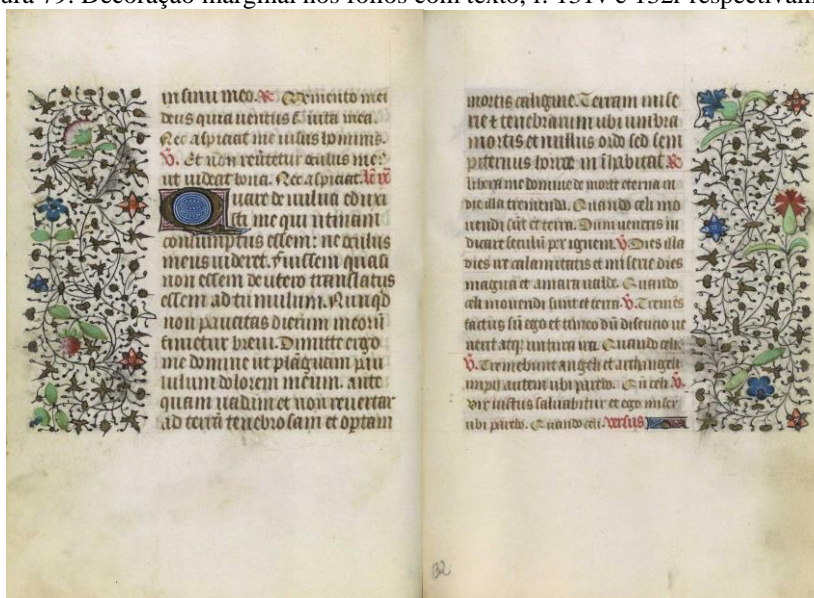 ura 79: Decoração marginal nos fólios com texto, f. 131v e 132r respectivam
in sinu meo. R. Memento mei
deus quia uentus e uita mea.
Nec aspiciat me uisus hominis.
V. Et non reũtetur oculus meꝰ
ut uideat bona. Nec aspiciat.
Quare de uulua eduxi
sti me qui utinam
consumptus essem: ne oculus
meus uideret. Fuissem quasi
non essem de utero translatus
essem ad tumulum. Nunqd
non paucitas dierum meorũ
finietur breui. Dimitte ergo
me domine ut plãguam pau
lulum dolorem meum. ante
quam uadam et non reuertar
ad terrã tenebrosam et optam
mortis caligine. Terram mise
rie ⁊ tenebrarum ubi umbra
mortis et nullus ordo sed sem
piternus horror inhabitat R.
libera me domine de morte eterna in
die illa tremenda. Quando celi mo
uendi sũt et terra. Dum ueneris iu
dicare seculũ per ignem. V. Dies illa
dies ire calamitatis et miserie dies
magna et amara ualde. Quando
celi mouendi sunt et terra. V. Tremẽs
factus sũ ego et timeo dũ discucio
uentura ira. Quando celi.
V. Tremebunt angeli et archangeli
impii autem ubi parebo. V.
uix iustus saluabitur et ego miser
ubi parebo. Quando celi. Versus
132